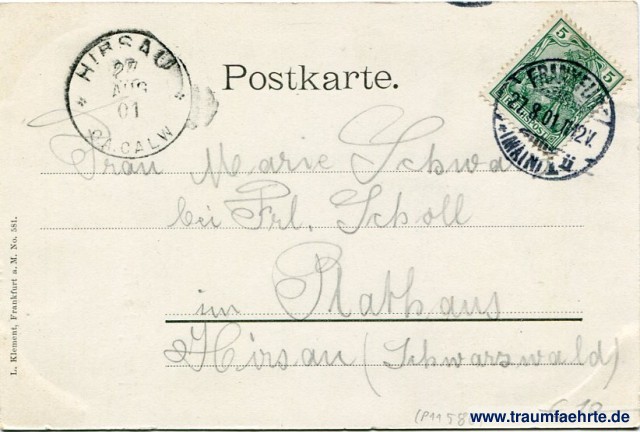 HIRSAU
27
AUG
01
OA. CALW
Postkarte.
5 5
FRANKFURT
27.8.01.
(MAIN) 1
Frau Marie Schwa
bei Frl. Scholl
im Rathaus
Hirsau (Schwarzwald)
L. Klement, Frankfurt a. M. No. 581.
www.traumfaehrte.de